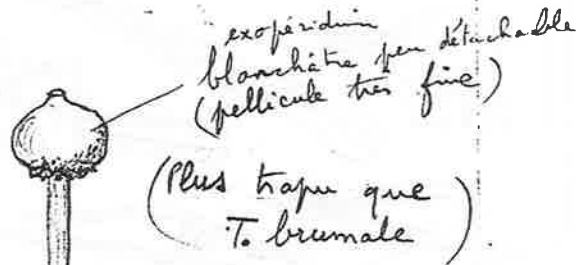 exopéridium
blanchâtre peu détachable
(pellicule très fine)
(Plus trapu que
T. brumale)